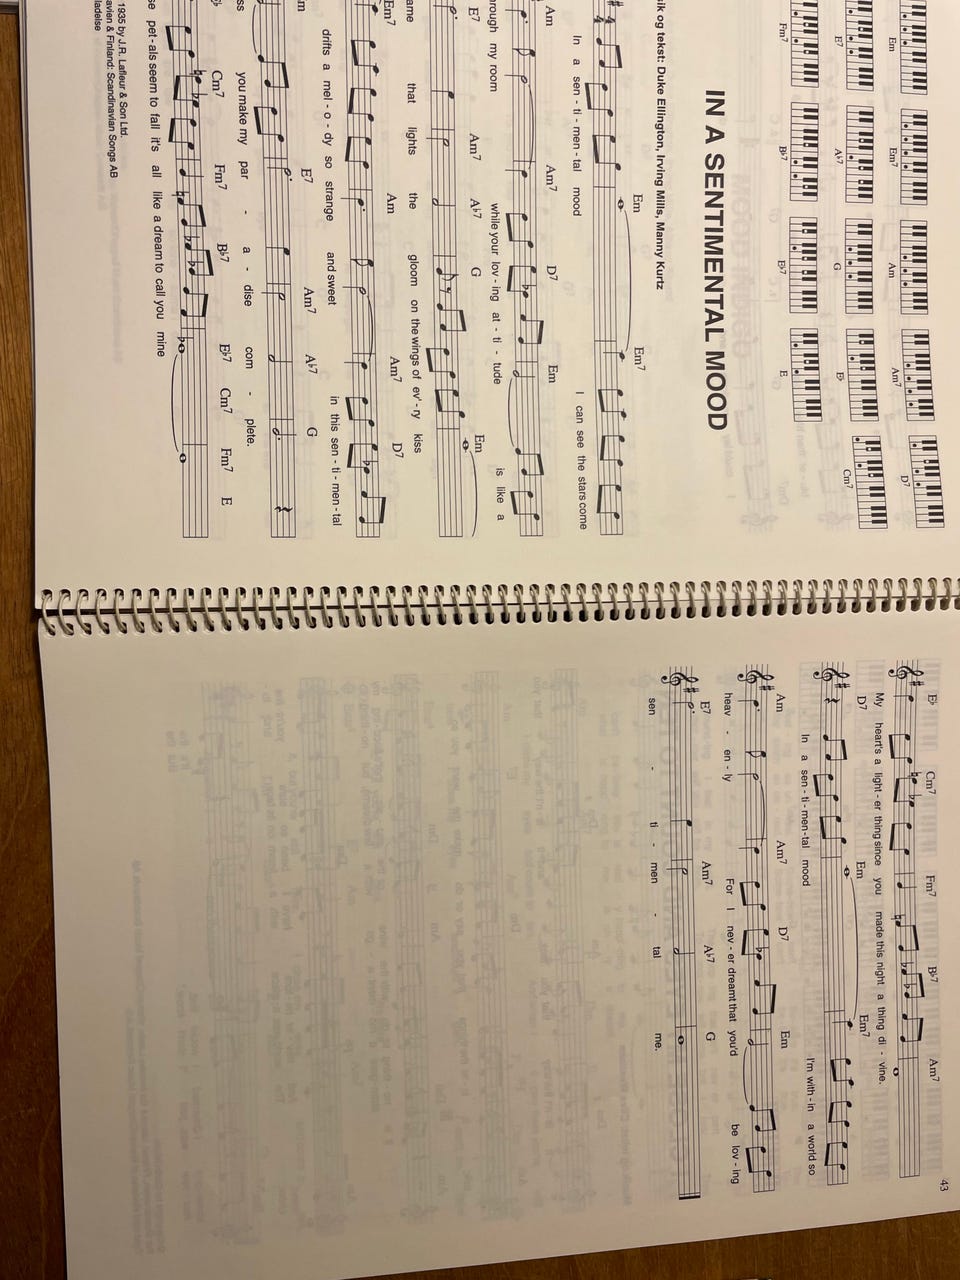 Em Em7 Am Am7 D7
E7 A♭7 G E♭ Cm7
Fm7 B♭7 E♭7 E
IN A SENTIMENTAL MOOD
ik og tekst: Duke Ellington, Irving Mills, Manny Kurtz
Em Em7
In a sen - ti - men - tal mood I can see the stars come
Am Am7 D7 Em
rough my room while your lov - ing at - ti - tude is like a
E7 Am7 A♭7 G Em
ame that lights the gloom on the wings of ev' - ry kiss
Em7 Am Am7 D7
drifts a mel - o - dy so strange and sweet in this sen - ti - men - tal
m E7 Am7 A♭7 G
ss you make my par - a - dise com - plete.
Cm7 Fm7 B♭7 E♭7 Cm7 Fm7 E
se pet - als seem to fall it's all like a dream to call you mine
1935 by J.R. Lafleur & Son Ltd.
avien & Finland: Scandinavian Songs AB
ladelse
43
E♭ Cm7 Fm7 B♭7 Am7
My heart's a light - er thing since you made this night a thing di - vine.
D7 Em Em7
In a sen - ti - men - tal mood I'm with - in a world so
Am Am7 D7 Em
heav - en - ly For I nev - er dreamt that you'd be lov - ing
E7 Am7 A♭7 G
sen - ti - men - tal me.